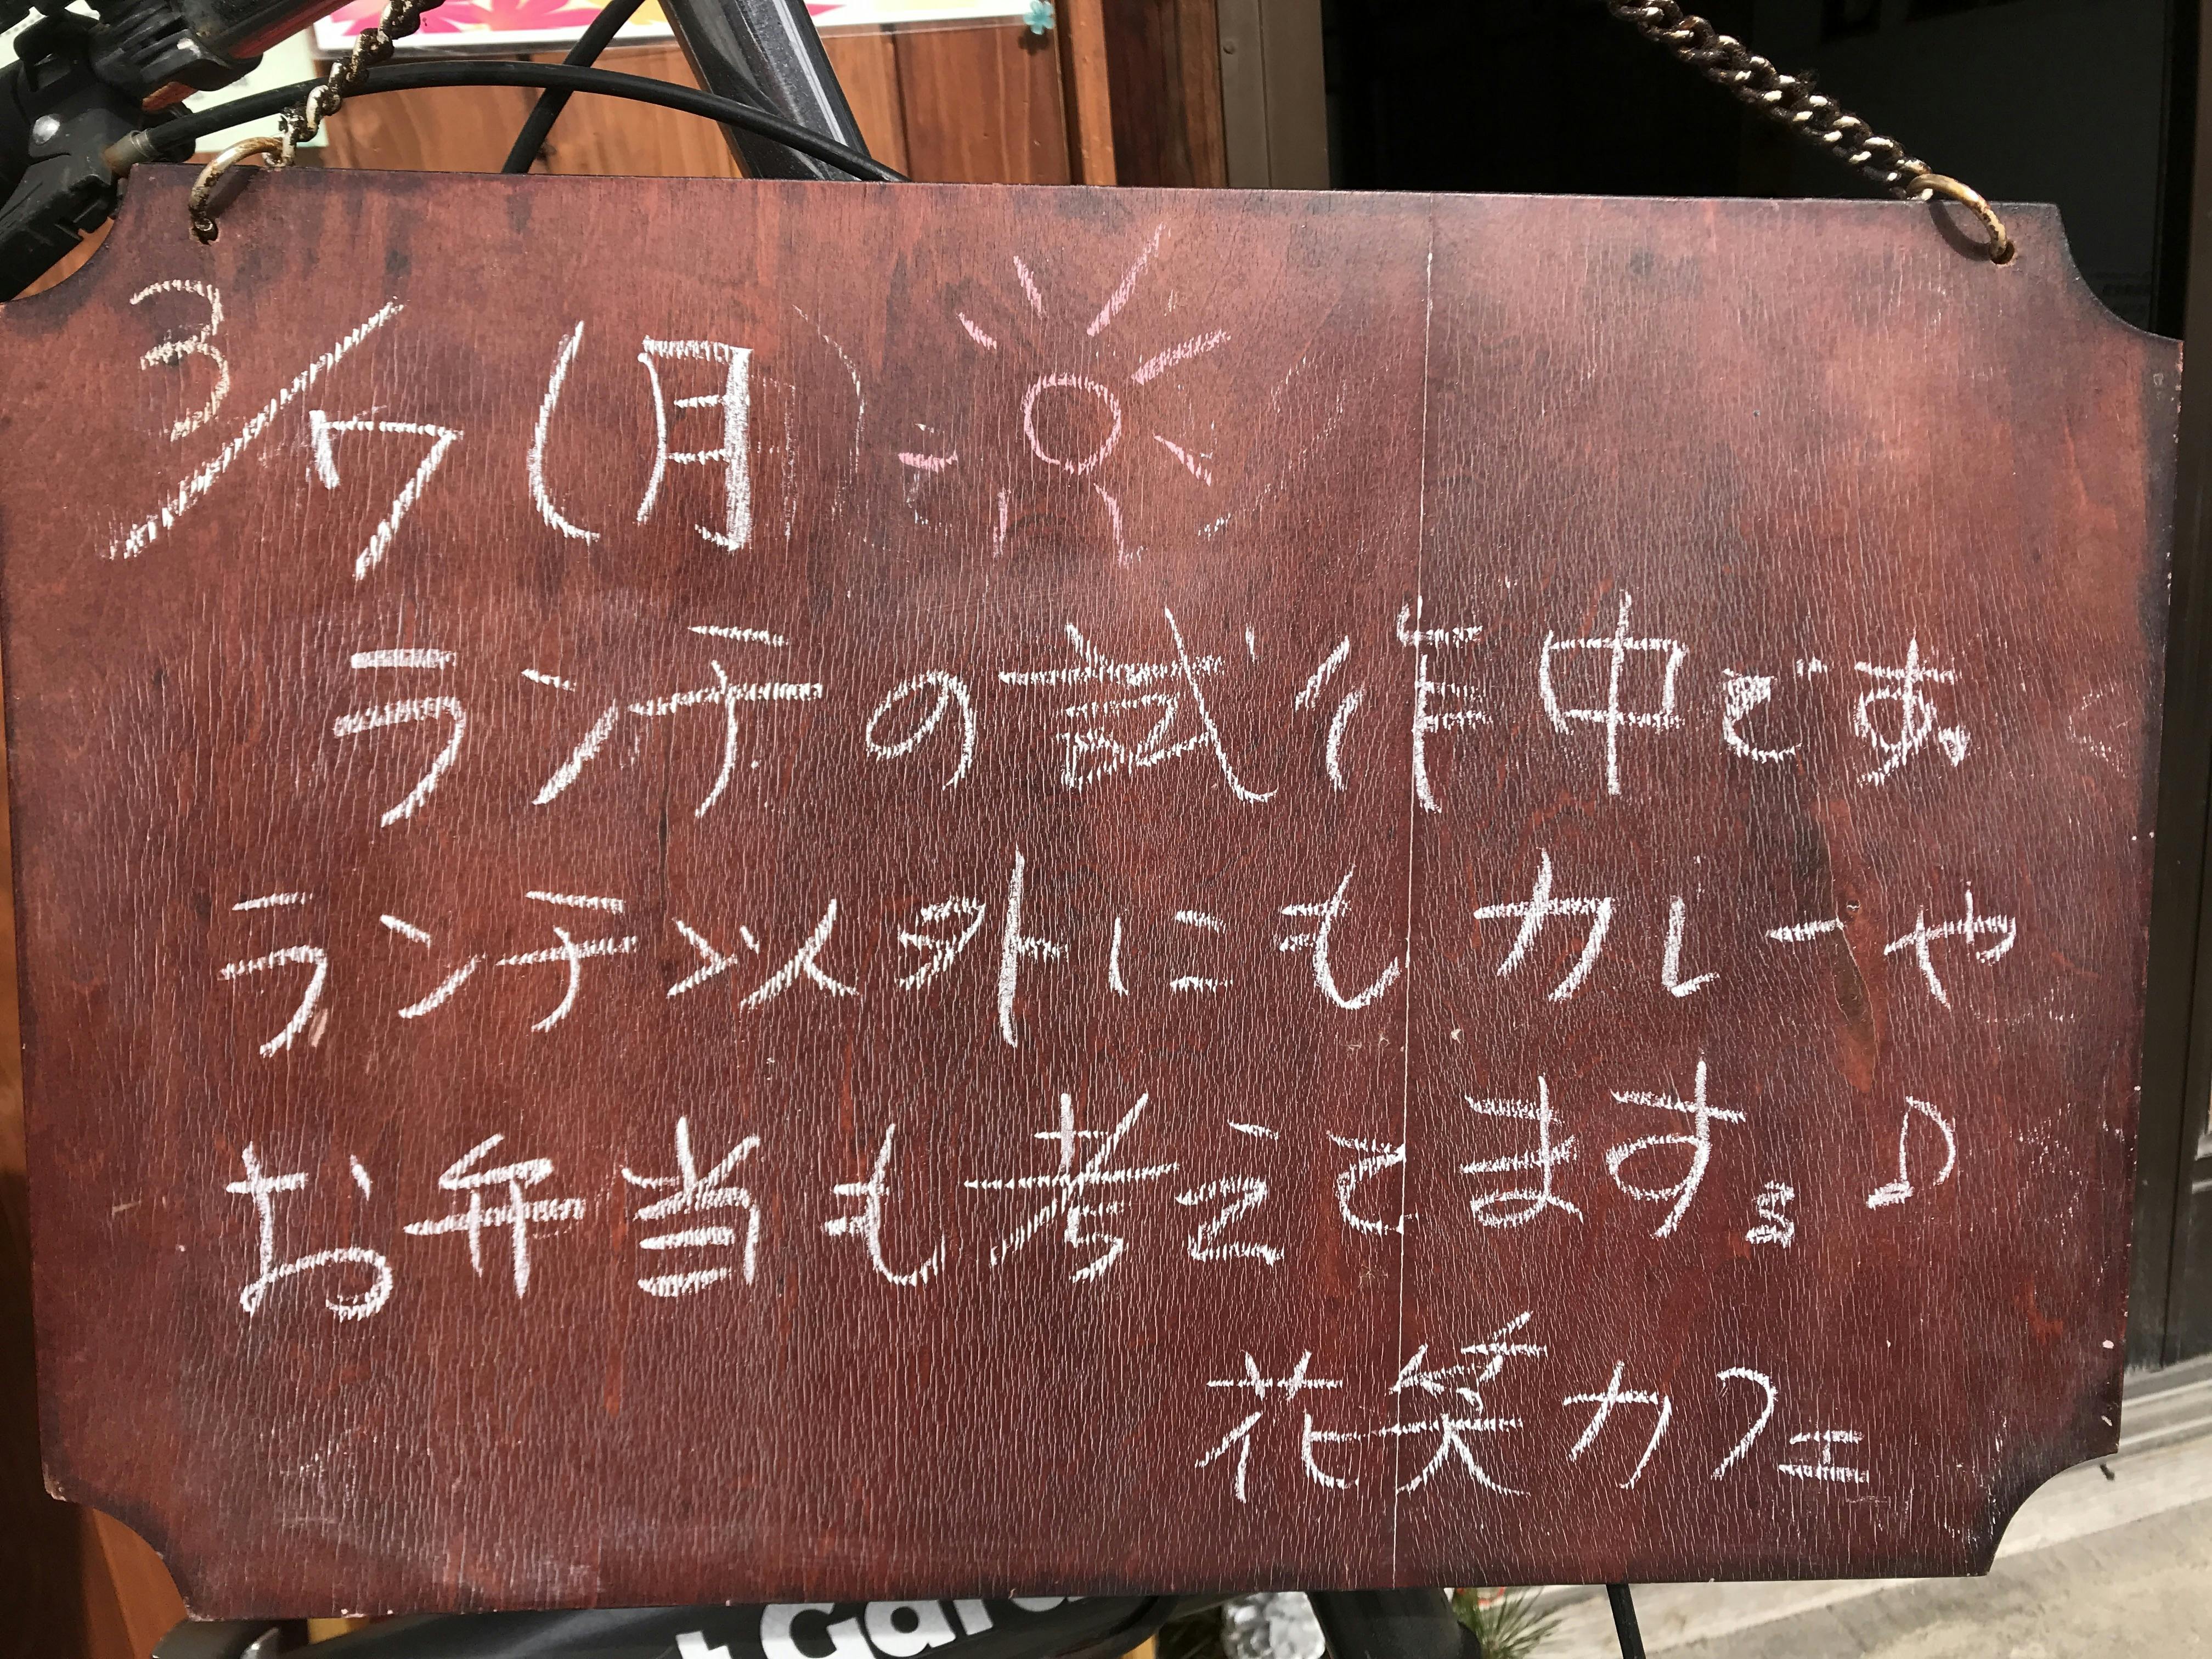 3/7(月)
ランチの試作中です。
ランチ以外にもカレーや
お弁当も考えてます。♪
花笑カフェ
t Gara